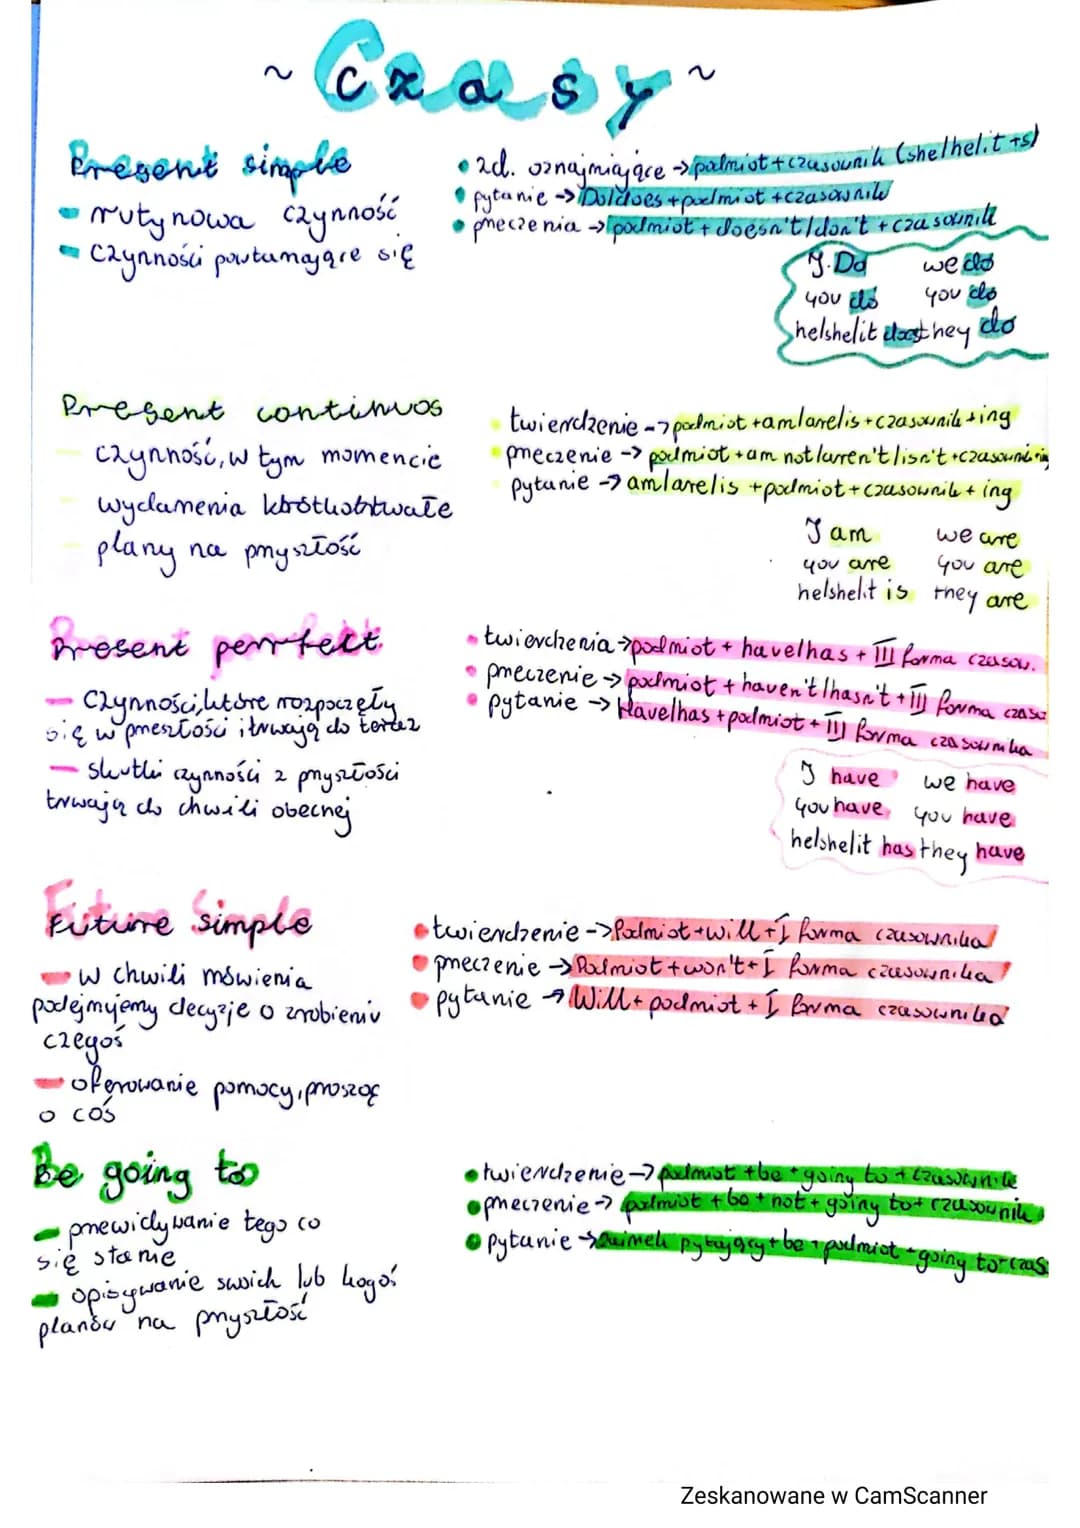 ~ Czasy ~
Present simple
- rutynowa czynność
- czynności powtarzające się
• zd. oznajmiające -> podmiot + czasownik (she/he/it +s)
• pytanie -> Do/does + podmiot + czasownik
• przeczenia -> podmiot + doesn't/don't + czasownik
I Do we do
you do you do
he/she/it does they do
Present continuos
czynność, w tym momencie
wydarzenia krótkotrwałe
plany na przyszłość
twierdzenie -> podmiot + am/are/is + czasownik + ing
przeczenie -> podmiot + am not/aren't/isn't + czasownik + ing
pytanie -> am/are/is + podmiot + czasownik + ing
I am we are
you are you are
he/she/it is they are
Present perfect
- Czynności, które rozpoczęły
się w przeszłości i trwają do teraz
- skutki czynności z przyszłości
trwają do chwili obecnej
• twierdzenia -> podmiot + have/has + III forma czasow.
• przeczenie -> podmiot + haven't/hasn't + III forma czaso
• pytanie -> Have/has + podmiot + III forma czasownika
I have we have
you have you have
he/she/it has they have
Future Simple
- w chwili mówienia
podejmujemy decyzje o zrobieniu
czegoś
- oferowanie pomocy, prosząc
o coś
• twierdzenie -> Podmiot + will + I forma czasownika
• przeczenie -> Podmiot + won't + I forma czasownika
• pytanie -> Will + podmiot + I forma czasownika
Be going to
- przewidywanie tego co
się stanie
- opisywanie swoich lub kogoś
planów na przyszłość
• twierdzenie -> podmiot + be + going to + czasownik
• przeczenie -> podmiot + be + not + going to + czasownik
• pytanie -> zaimek pytający + be + podmiot + going to + czas
Zeskanowane w CamScanner